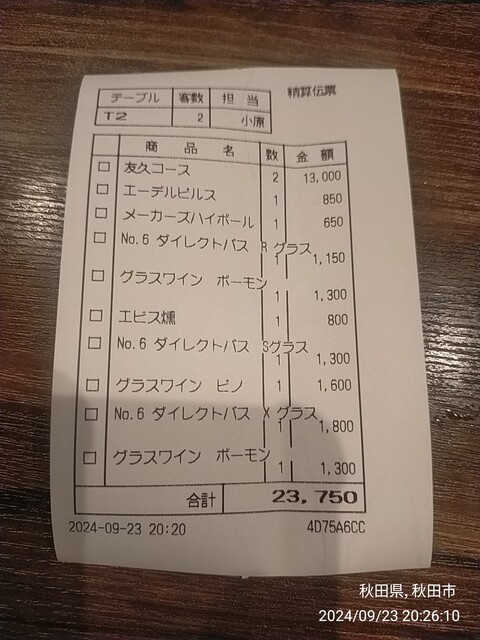 精算伝票
テーブル 客数 担当
T2 2 小原
商品名 数 金額
友久コース 2 13,000
エーデルピルス 1 850
メーカーズハイボール 1 650
No.6 ダイレクトパス R グラス 1 1,150
グラスワイン ボーモン 1 1,300
エビス燻 1 800
No.6 ダイレクトパス Sグラス 1 1,300
グラスワイン ピノ 1 1,600
No.6 ダイレクトパス X グラス 1 1,800
グラスワイン ボーモン 1 1,300
合計 23,750
2024-09-23 20:20 4D75A6CC
秋田県,秋田市
2024/09/23 20:26:10